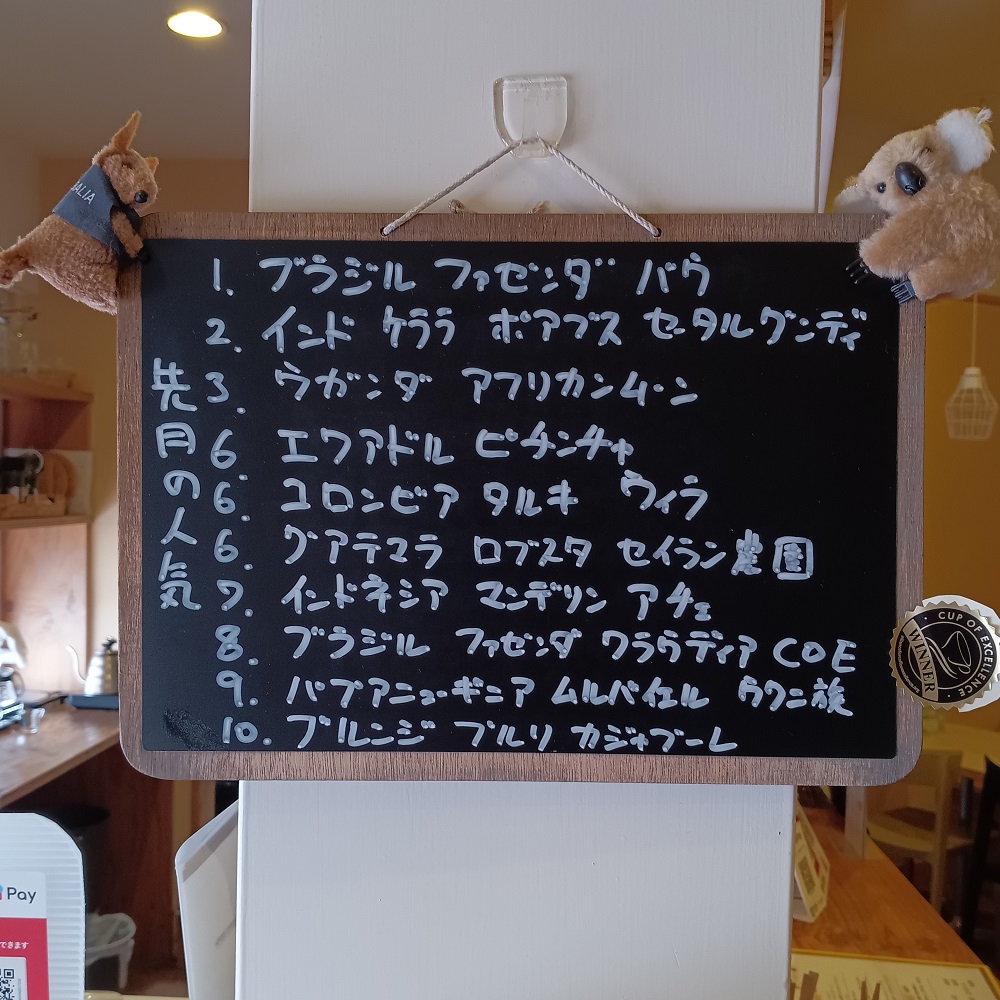 先月の人気
1. ブラジル ファゼンダ バウ
2. インド ケララ ポアブス セータルグンディ
3. ウガンダ アフリカンムーン
6. エクアドル ピチンチャ
6. コロンビア タルキ ウィラ
6. グアテマラ ロブスタ セイラン農園
7. インドネシア マンデリン アチェ
8. ブラジル ファゼンダ クラウディア COE
9. パプアニューギニア ムルパイエル ウクニ族
10. ブルンジ ブルリ カジャブーレ
ALIA
CUP OF EXCELLENCE
WINNER
Pay
できます